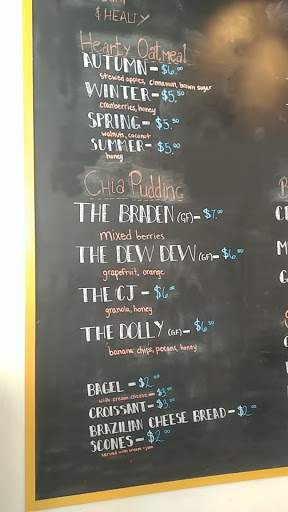 & HEALTY
Hearty Oatmeal
AUTUMN - $6.00
stewed apples, cinnamon, brown sugar
WINTER - $5.50
cranberries, honey
SPRING - $5.50
walnuts, coconut
SUMMER - $5.00
honey
CHIA Pudding
THE BRADEN (GF) - $7.00
mixed berries
THE DEW DEW (GF) - $6.00
grapefruit, orange
THE CJ - $6.00
granola, honey
THE DOLLY (GF) - $6.50
banana chips, pecans, honey
BAGEL - $2.00
with cream cheese - $3.00
CROISSANT - $3.00
BRAZILIAN CHEESE BREAD - $2.00
SCONES - $2.00
served with cream + jam